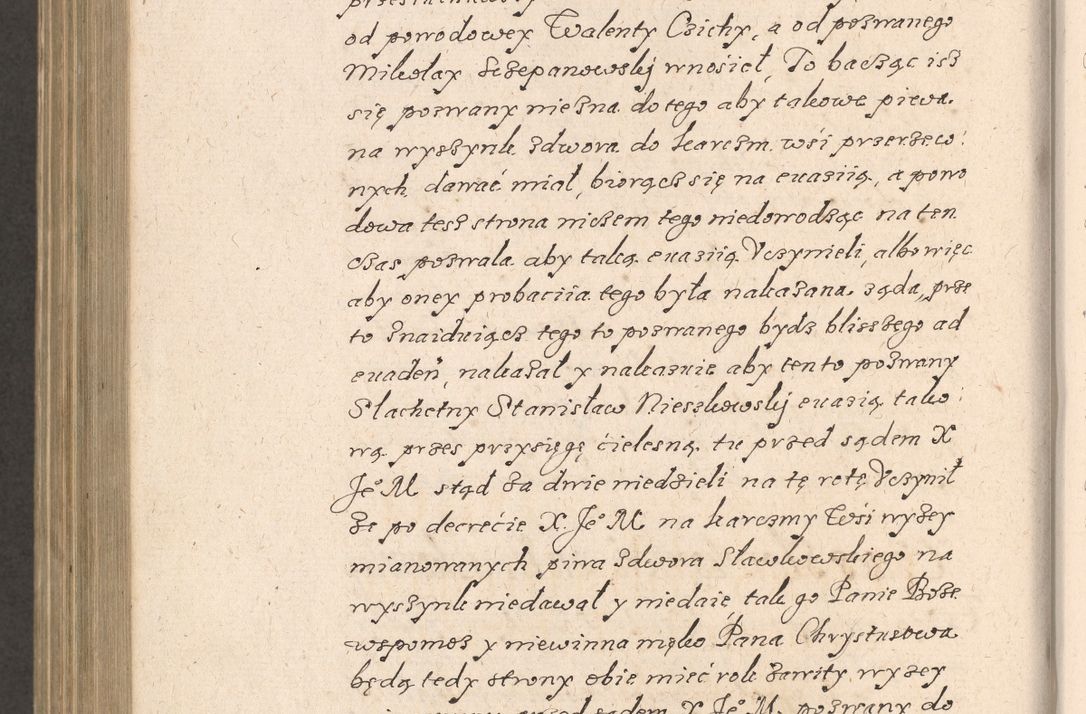 od powodowey Walenty Czichy, a od pozwanego
Mikołay Sczepanowskij wnosieł, To bacząc isz
się pozwany niezna do tego aby takowe piwa
na wyszynk zdwora do karczm wśi przerzeco
nych dawać miał, biorącz się na euaziią, a powo
dowa tesz strona niczem tego niedowodząc na ten
czas pozwala aby taką euaziią Vczynieli, albo więc
aby oney probaciia tego była nakazana żąda, prze
to znaiduiącz tego to pozwanego bydz bliszszego ad
euadeń, nakazał y nakazuie aby ten to pozwany
Slachetny Stanisław Nieszkowskij euazią tako
wą przes przysięgę ćielesną tu przed sądem X
Je° M stąd za dwie niedzieli na tę rotę Vczynił
że po decrećie X. Je° M na karczmy Wśi wyżey
mianowanych piwa zdwora Sławkowskiego na
wyszynk niedawał y niedaie, tak go Panie Boże
wspomoż y niewinna męko Pana Chrystusowa
będą tedy strony obie mieć rok zawity wyżey
sądem X Je° M. pozwany do